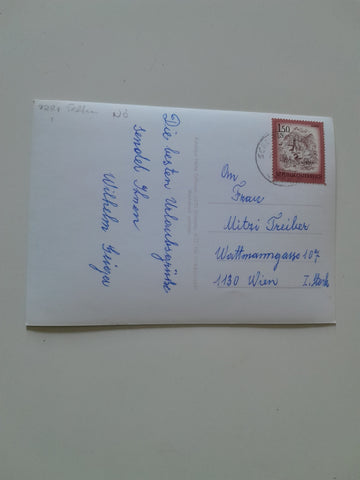 NÖ
Die besten Urlaubsgrüße
sendet Ihnen
Wilhelm Geiger
1.50
REPUBLIK ÖSTERREICH
An
Frau
Mitzi Treiber
Wattmanngasse 107
1130 Wien I. Stock